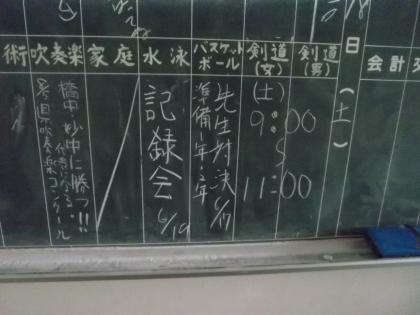 日(土)
会計
剣道(男)
剣道(女)
(土)
9:00
〜
11:00
バスケットボール
先生対決6/17
準備1年2年
水泳
記録会
6/19
家庭
吹奏楽
橋中・妙中に勝つ!!
代表になる
術